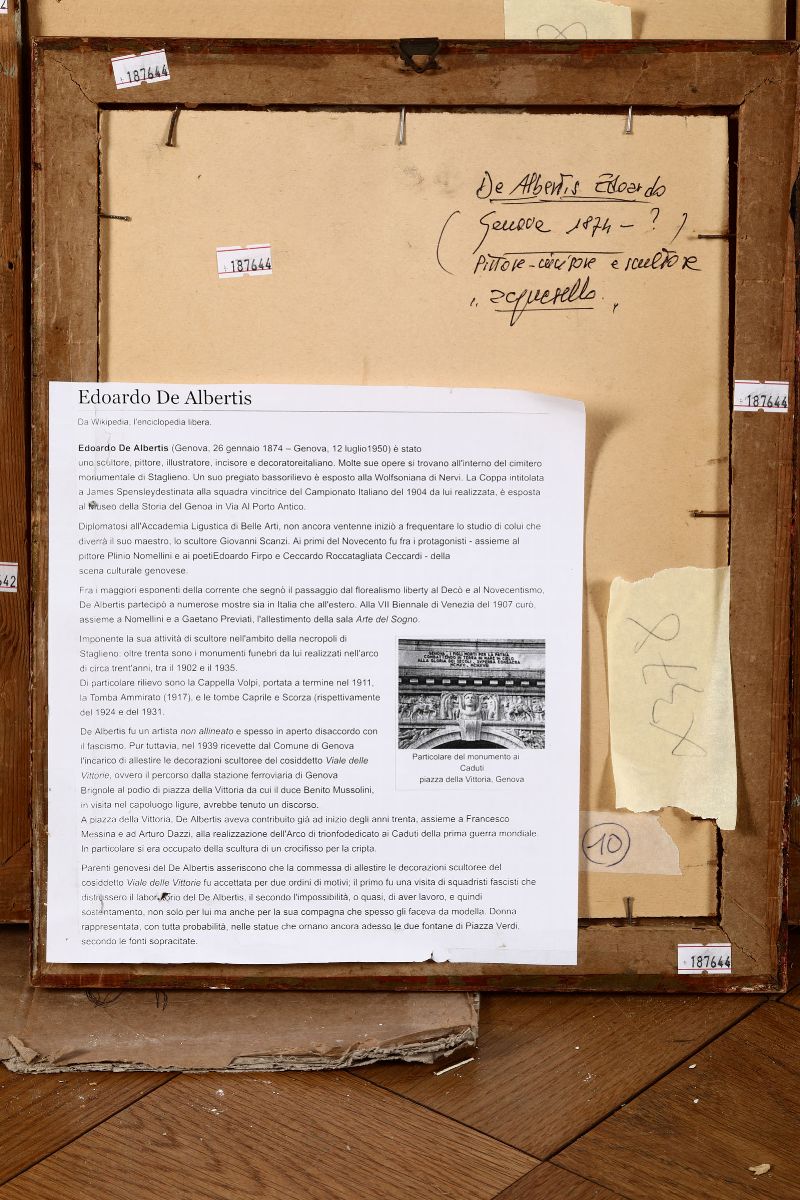 187644
De Albertis Edoardo
(Genova 1874 - ?)
Pittore-incisore e scultore
"acquerello"
187644
187644
Edoardo De Albertis
Da Wikipedia, l'enciclopedia libera.
Edoardo De Albertis (Genova, 26 gennaio 1874 – Genova, 12 luglio1950) è stato
uno scultore, pittore, illustratore, incisore e decoratoreitaliano. Molte sue opere si trovano all'interno del cimitero
monumentale di Staglieno. Un suo pregiato bassorilievo è esposto alla Wolfsoniana di Nervi. La Coppa intitolata
a James Spensleydestinata alla squadra vincitrice del Campionato Italiano del 1904 da lui realizzata, è esposta
al Museo della Storia del Genoa in Via Al Porto Antico.
Diplomatosi all'Accademia Ligustica di Belle Arti, non ancora ventenne iniziò a frequentare lo studio di colui che
diverrà il suo maestro, lo scultore Giovanni Scanzi. Ai primi del Novecento fu fra i protagonisti - assieme al
pittore Plinio Nomellini e ai poetiEdoardo Firpo e Ceccardo Roccatagliata Ceccardi - della
scena culturale genovese.
Fra i maggiori esponenti della corrente che segnò il passaggio dal florealismo liberty al Decò e al Novecentismo,
De Albertis partecipò a numerose mostre sia in Italia che all'estero. Alla VII Biennale di Venezia del 1907 curò,
assieme a Nomellini e a Gaetano Previati, l'allestimento della sala Arte del Sogno.
Imponente la sua attività di scultore nell'ambito della necropoli di
Staglieno: oltre trenta sono i monumenti funebri da lui realizzati nell'arco
di circa trent'anni, tra il 1902 e il 1935.
Di particolare rilievo sono la Cappella Volpi, portata a termine nel 1911,
la Tomba Ammirato (1917), e le tombe Caprile e Scorza (rispettivamente
del 1924 e del 1931.
De Albertis fu un artista non allineato e spesso in aperto disaccordo con
il fascismo. Pur tuttavia, nel 1939 ricevette dal Comune di Genova
l'incarico di allestire le decorazioni scultoree del cosiddetto Viale delle
Vittorie, ovvero il percorso dalla stazione ferroviaria di Genova
Brignole al podio di piazza della Vittoria da cui il duce Benito Mussolini,
in visita nel capoluogo ligure, avrebbe tenuto un discorso.
GENOVA AI FIGLI MORTI PER LA PATRIA
COMBATTENDO IN TERRA IN MARE IN CIELO
ALLA GLORIA DEI SECOLI SUPERBA CONSACRA
Particolare del monumento ai
Caduti
piazza della Vittoria, Genova
A piazza della Vittoria, De Albertis aveva contribuito già ad inizio degli anni trenta, assieme a Francesco
Messina e ad Arturo Dazzi, alla realizzazione dell'Arco di trionfodedicato ai Caduti della prima guerra mondiale.
In particolare si era occupato della scultura di un crocifisso per la cripta.
Parenti genovesi del De Albertis asseriscono che la commessa di allestire le decorazioni scultoree del
cosiddetto Viale delle Vittorie fu accettata per due ordini di motivi; il primo fu una visita di squadristi fascisti che
distrussero il laboratorio del De Albertis, il secondo l'impossibilità, o quasi, di aver lavoro, e quindi
sostentamento, non solo per lui ma anche per la sua compagna che spesso gli faceva da modella. Donna
rappresentata, con tutta probabilità, nelle statue che ornano ancora adesso le due fontane di Piazza Verdi,
secondo le fonti sopracitate.
10
187644
642